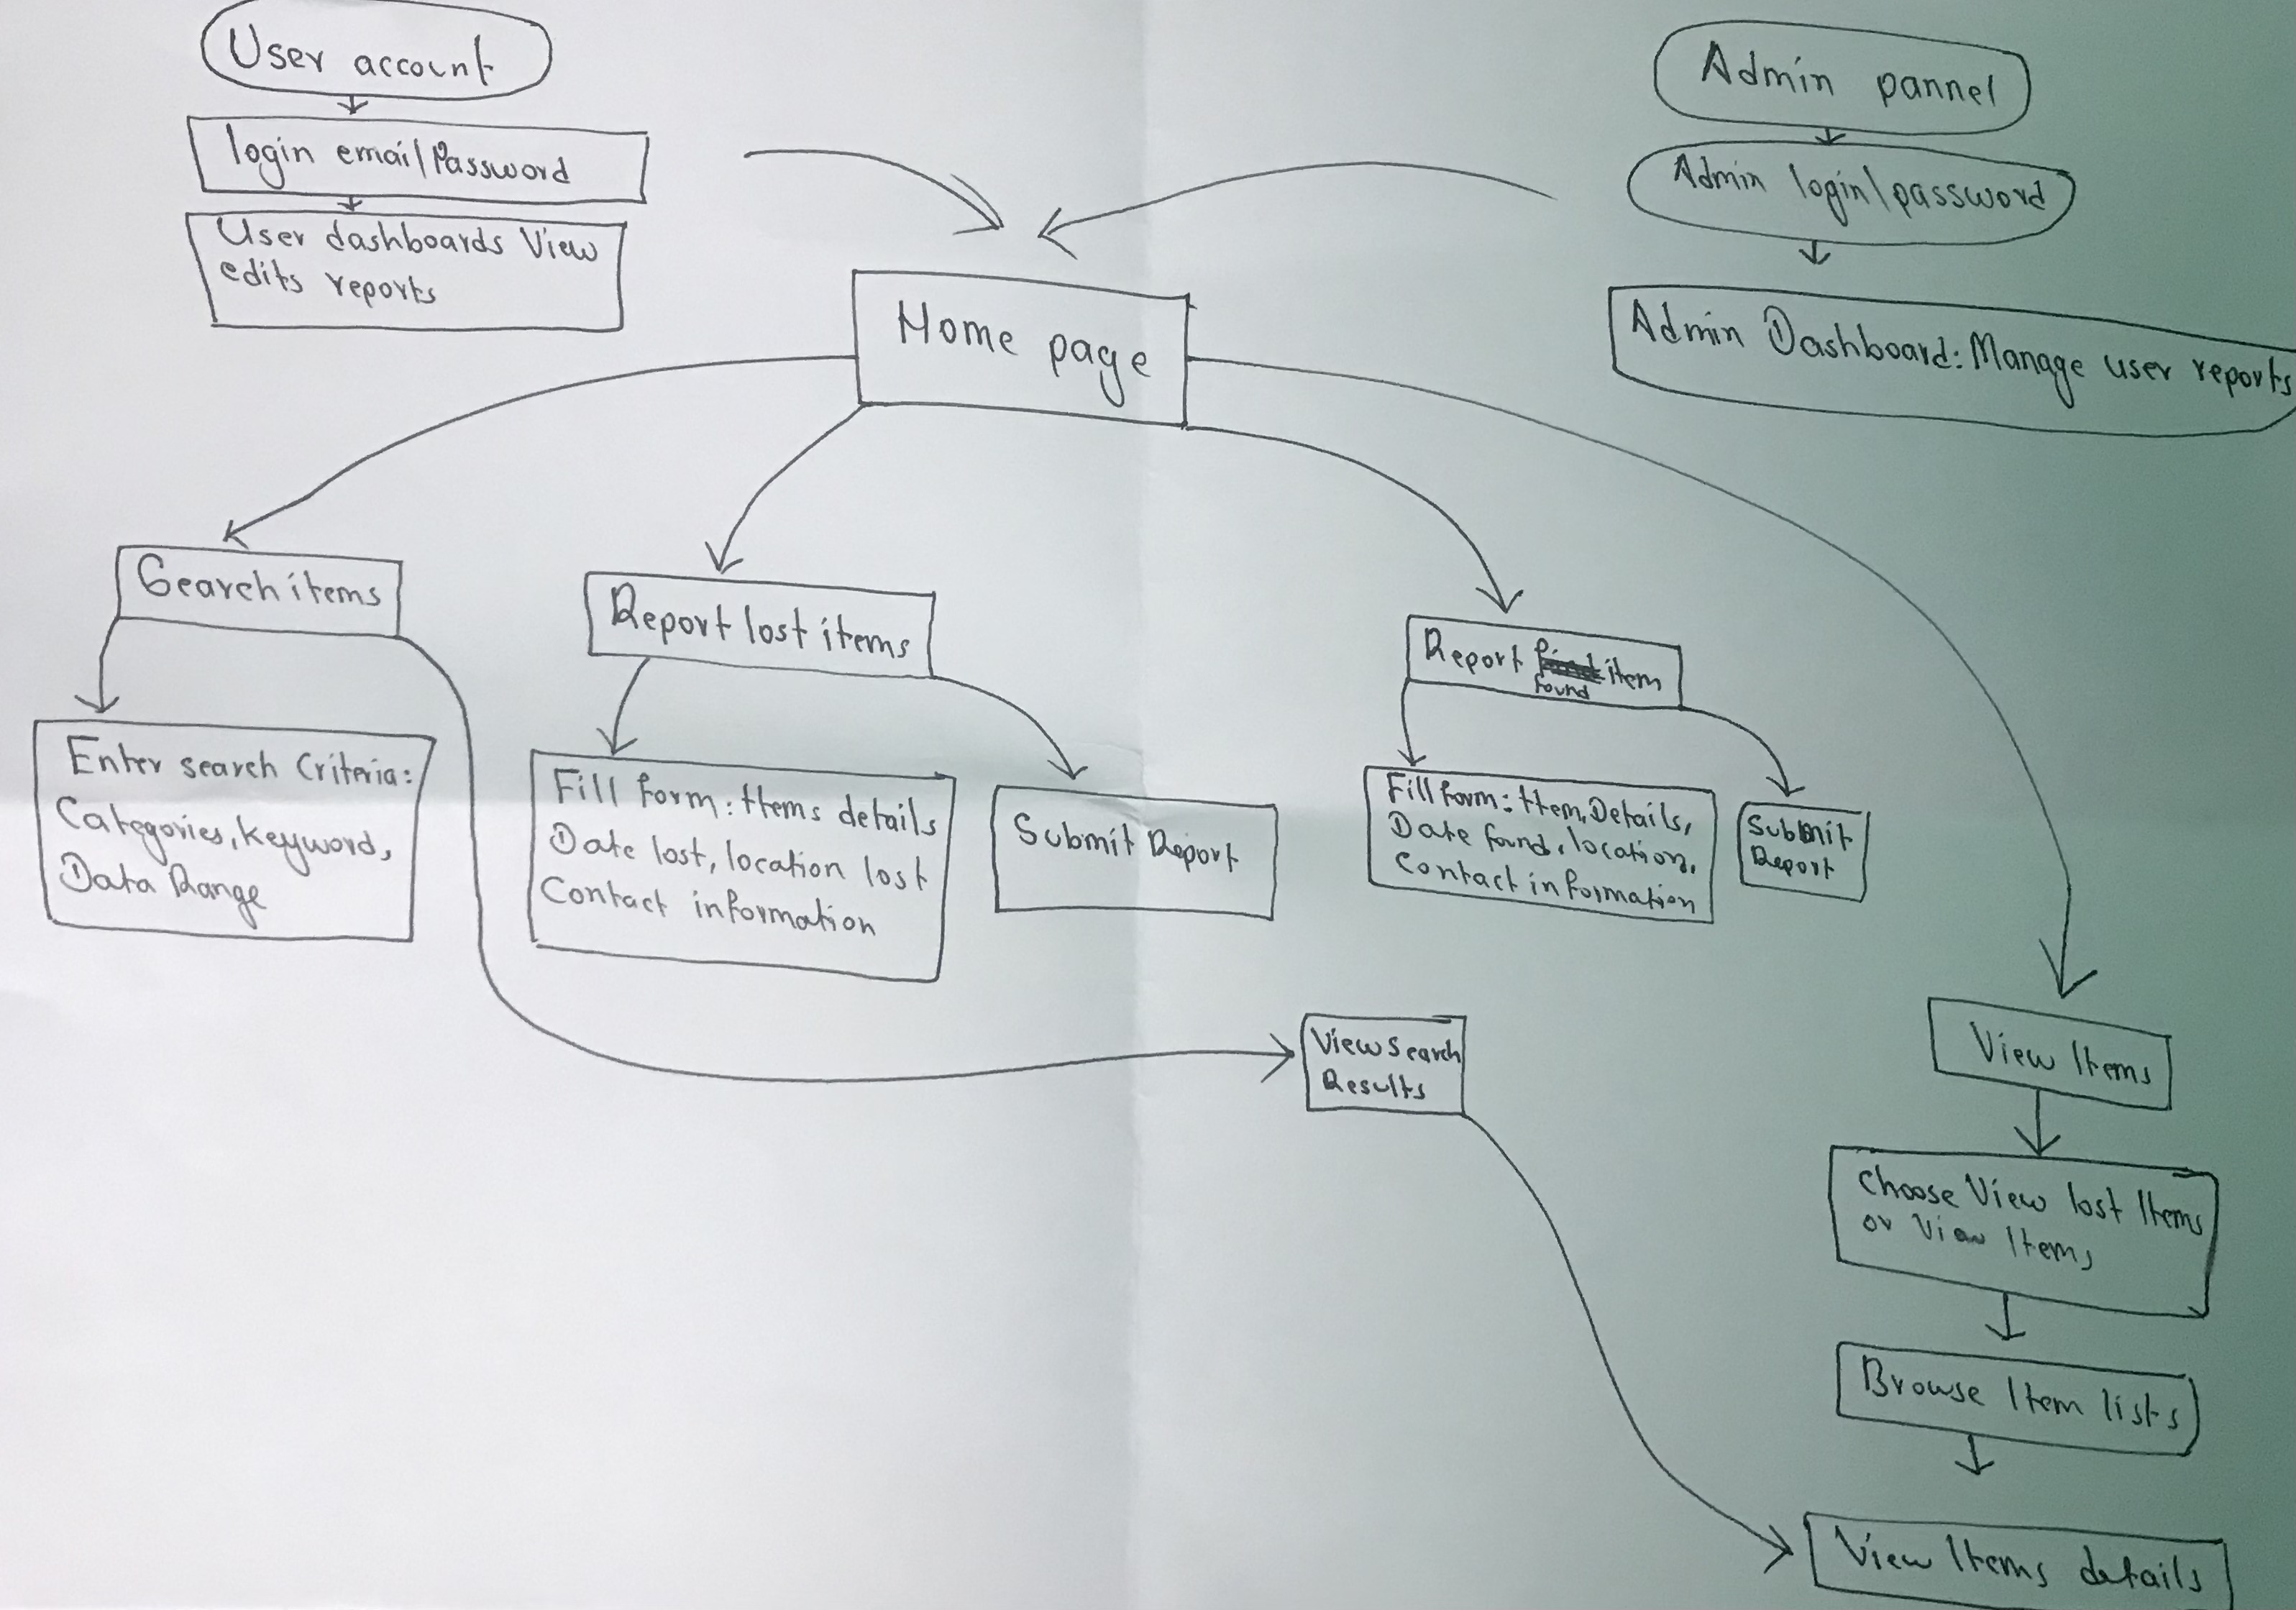 User account
login email/Password
User dashboards View
edits reports
Admin pannel
Admin login/password
Admin Dashboard: Manage user reports
Home page
Search items
Report lost items
Report item
found
Enter search Criteria:
Categories, keyword,
Data Range
Fill form: Items details
Date lost, location lost
Contact information
Submit Report
Fill form: Item, Details,
Date found, location,
Contact information
Submit
Report
View search
Results
View Items
Choose View lost Items
or View Items
Browse Item lists
View Items details